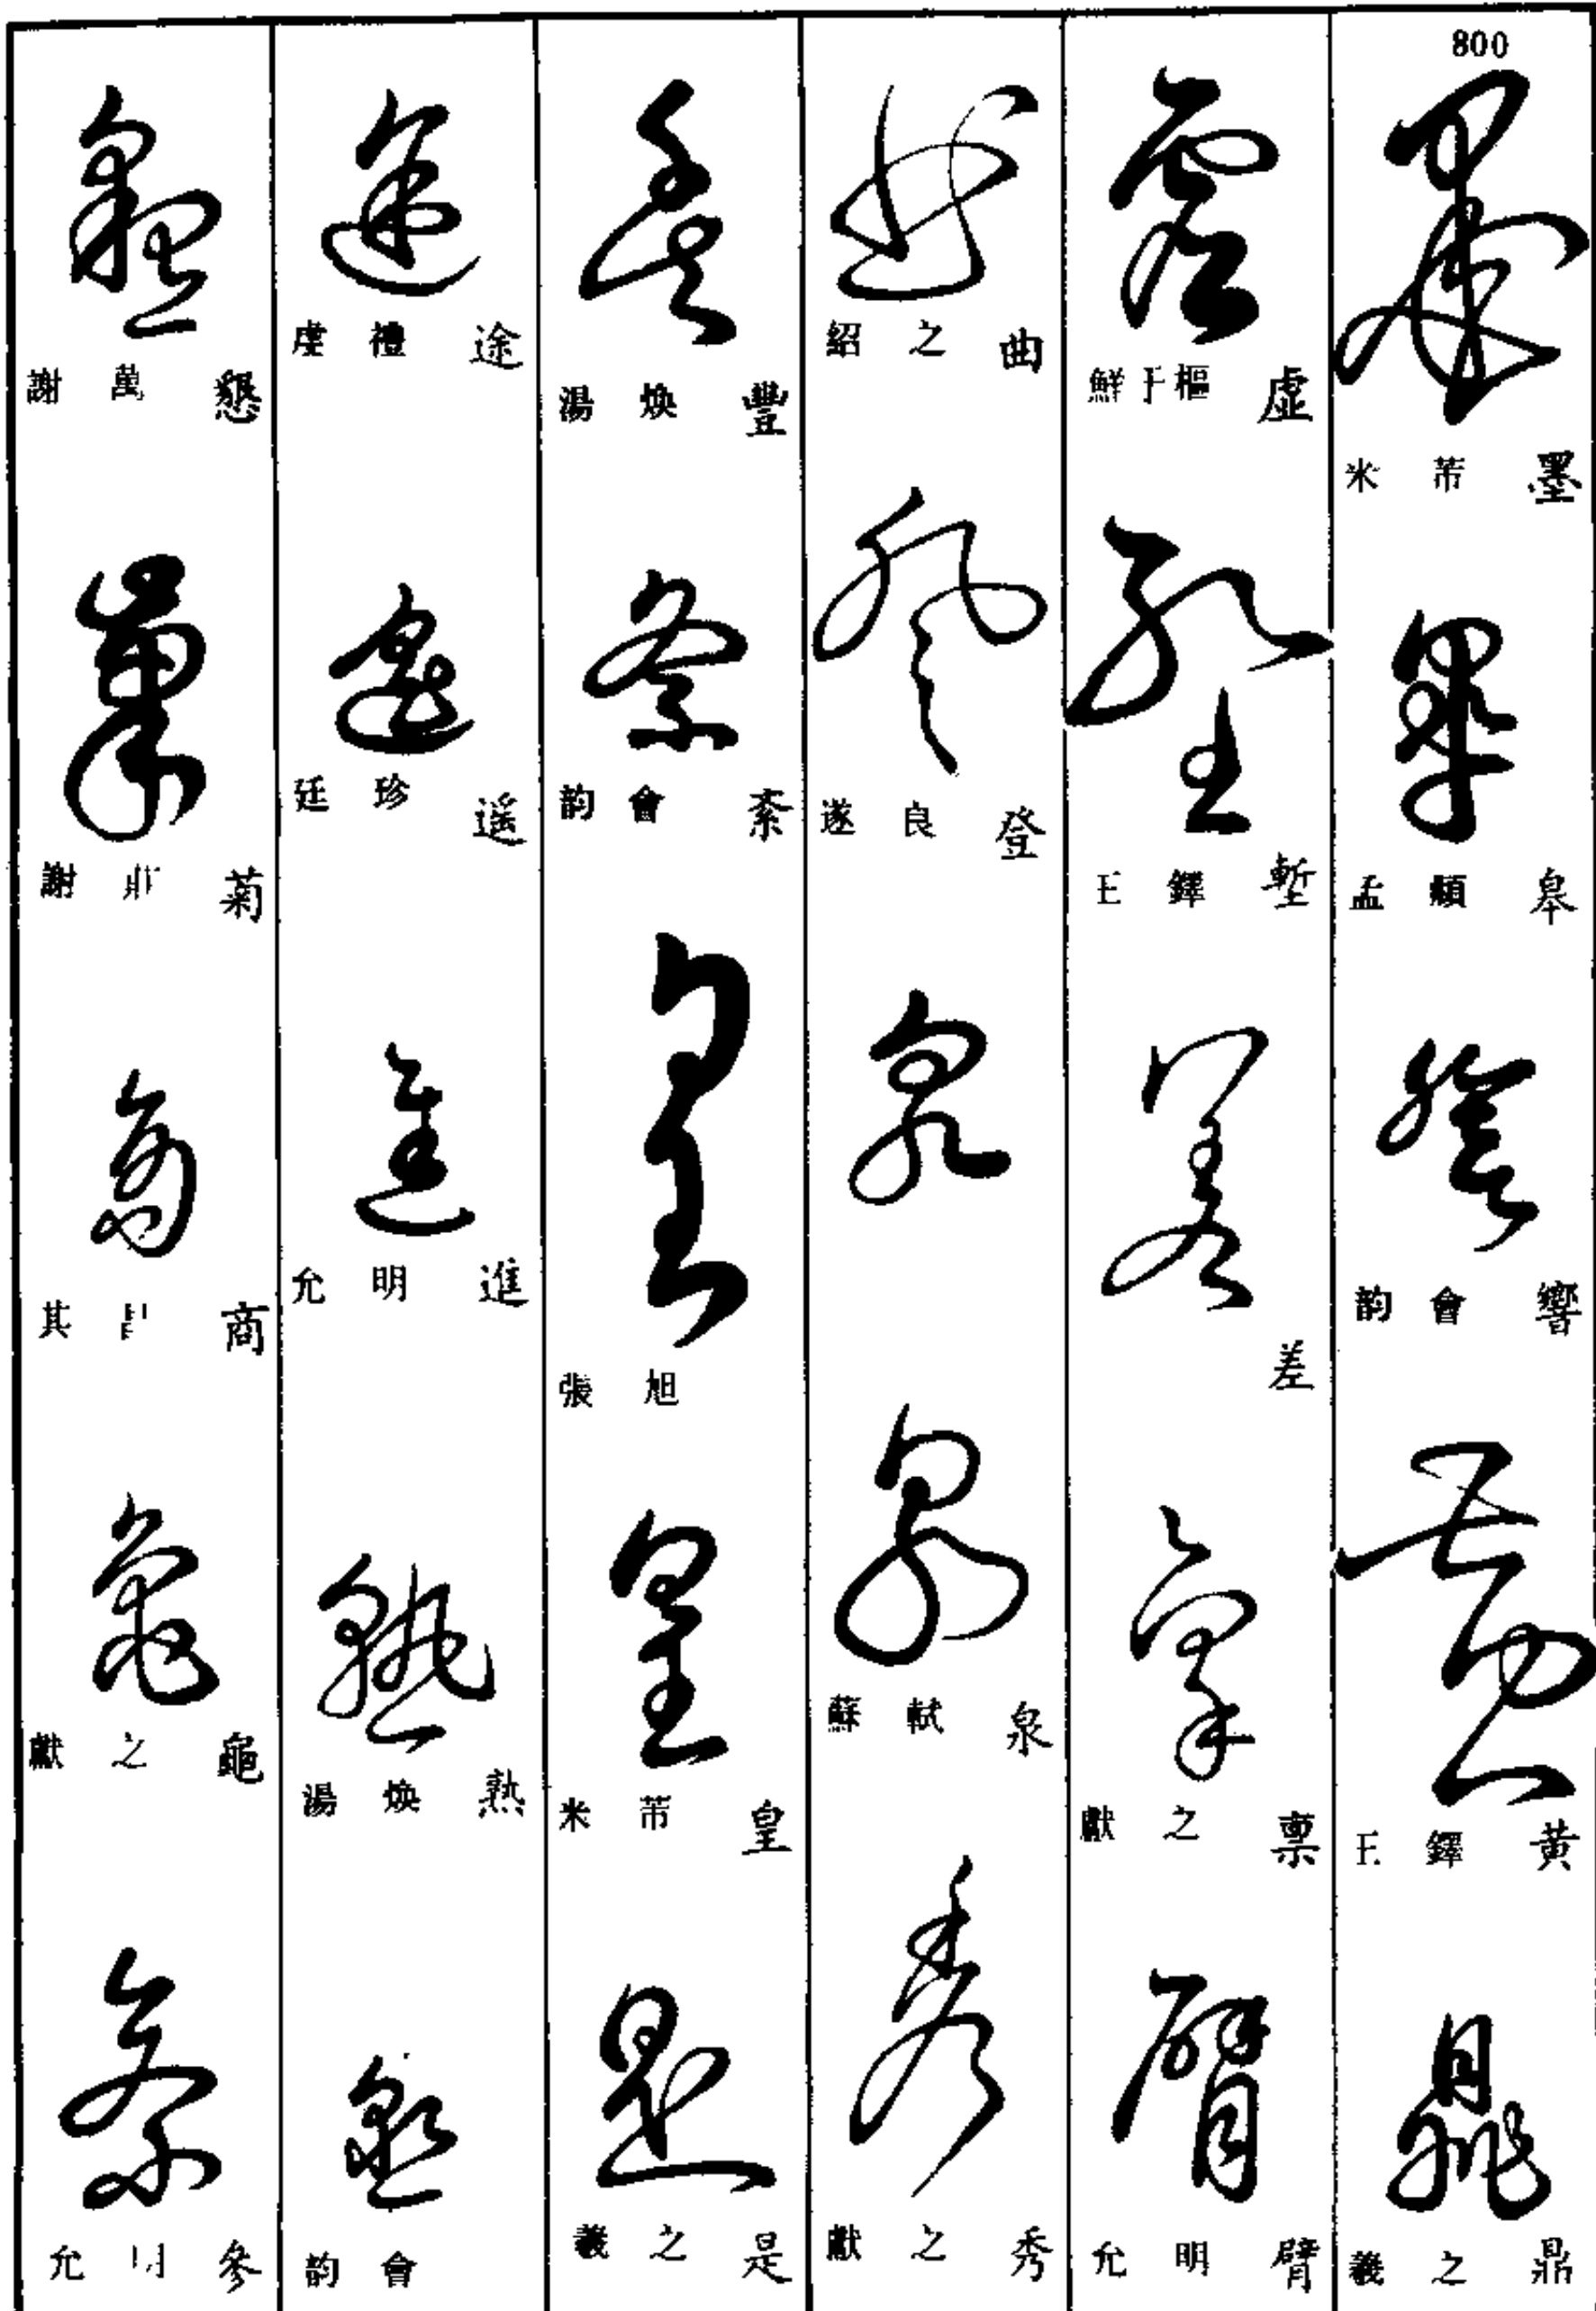 800
米芾 墨
孟頫 皋
韵會 響
王鐸 黃
羲之 鼎
鮮于樞 虛
王鐸 塹
差
獻之 稟
允明 臂
紹之 曲
遂良 登
蘇軾 泉
獻之 秀
湯煥 豐
韵會 紊
張旭
米芾 皇
羲之 是
虔禮 途
廷珍 遥
允明 進
湯煥 熟
韵會
謝萬 懇
謝莊 菊
其昌 商
獻之 龜
允明 參